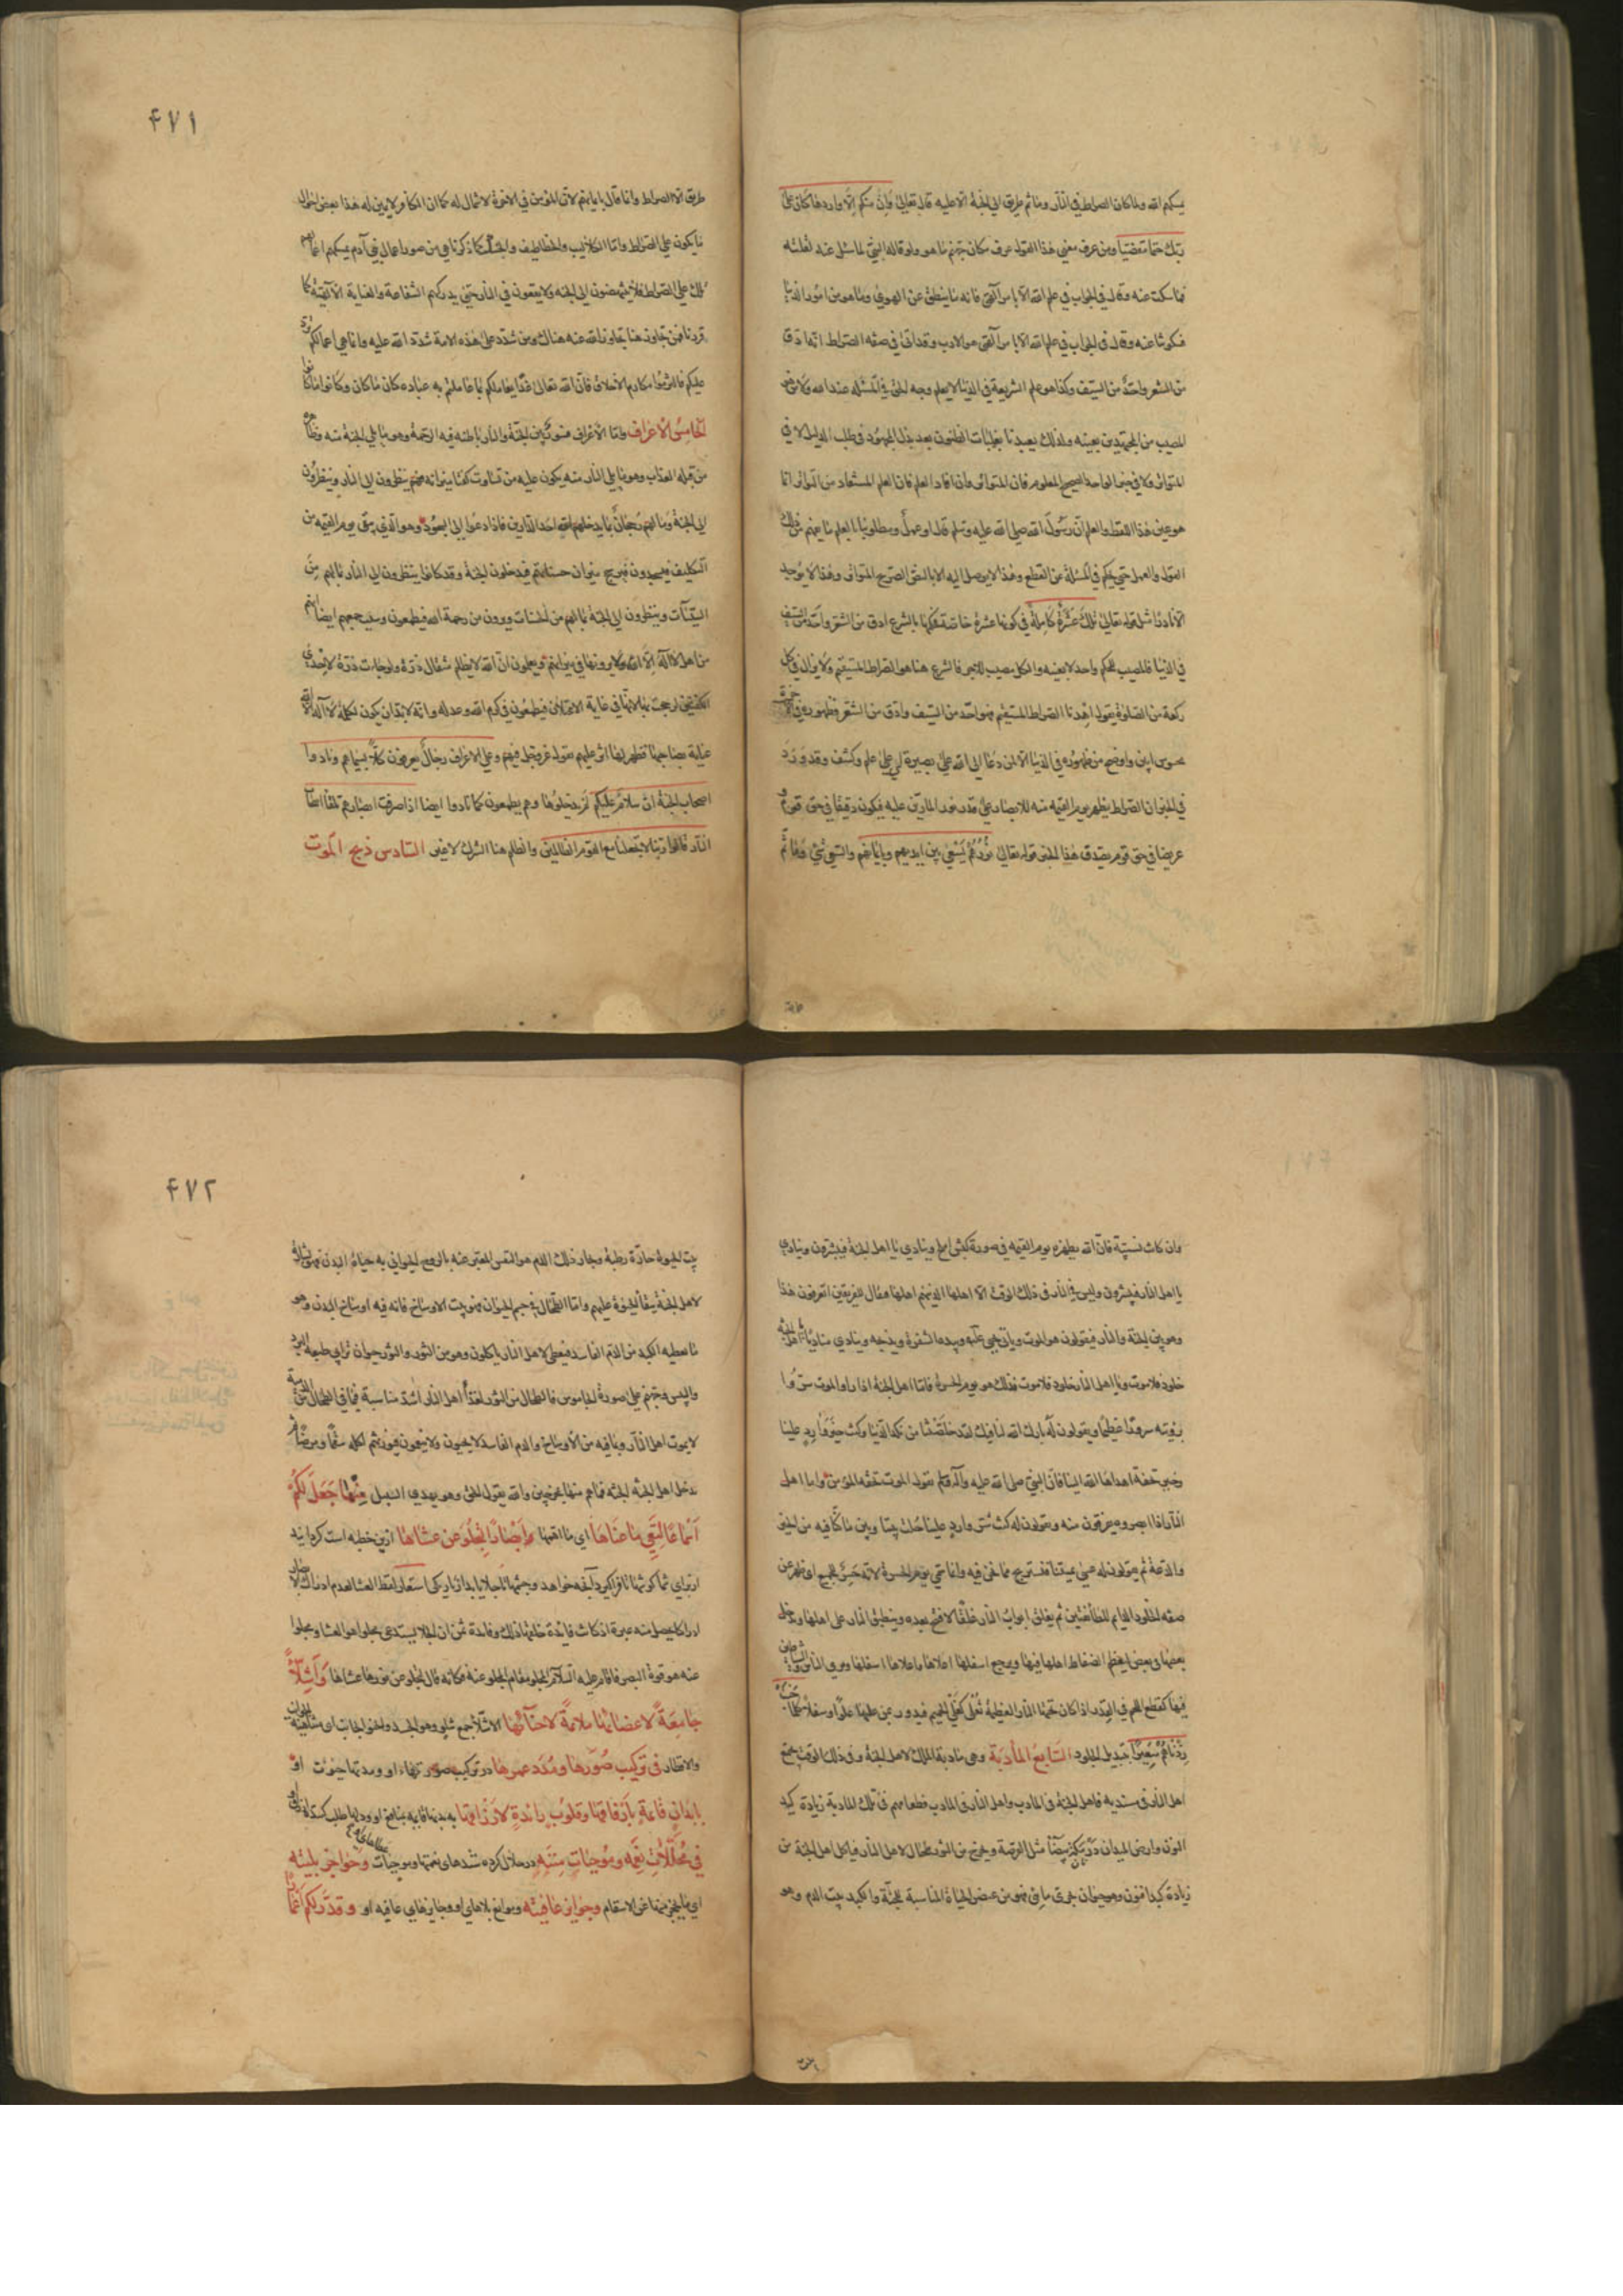 يمسكهم الله ولما كان الصراط في النار وما ثم طريق الى الجنة الا عليه قال تعالى وان منكم الا واردها كان على
ربك حتما مقضيا ومن عرف معنى هذا القول عرف مكان جهنم ما هو ولو قاله النبى لما سئل عنه لقلته
فما سكت عنه وقال في الجواب في علم الله الا بامر الهى فانه ما ينطق عن الهوى وما هو من امور الدنيا
فسكوتنا عنه وقال في الجواب في علم الله الا بامر الهى هو الادب وقد اتى في صفة الصراط انه ادق
من الشعر واحد من السيف وكذا هو علم الشريعة في الدنيا لا يعلم وجه الحق في المسئلة عند الله ولا من هو
المصيب من المجتهدين بعينه ولذلك تعبدنا بغلبات الظنون بعد بذل المجهود في طلب الدليل لا في
المتواتر ولا في خبر الواحد الصحيح المعلوم فان المتواتر وان افاد العلم فان العلم المستفاد من التواتر انما
هو عين هذا اللفظ والعلم ان رسول الله صلى الله عليه وسلم قاله او عمله ومطلوبنا بالعلم ما يفهم من ذلك
القول والعمل حتى يحكم في المسئلة على القطع وهذا لا يوصل اليه الا بالنص الصريح المتواتر وهذا لا يوجد
الا نادرا مثل قوله تعالى تلك عشرة كاملة في كونها عشرة خاصة فحكمها بالشرع ادق من الشعر واحد من السيف
في الدنيا فالمصيب للحكم واحد لا بعينه والكل مصيب للاجر فالشرع هنا هو الصراط المستقيم ولا يزال في كل
ركعة من الصلوة يقول اهدنا الصراط المستقيم فهو احد من السيف وادق من الشعر فظهوره في الاخرة
محسوس ابين واوضح من ظهوره في الدنيا الا لمن دعا الى الله على بصيرة اي على علم وكشف وقد ورد
في الخبر ان الصراط يظهر يوم القيمة منه للابصار على قدر نور المارين عليه فيكون دقيقا في حق قوم و
عريضا في حق قوم يصدق هذا الخبر قوله تعالى نورهم يسعى بين ايديهم وبايمانهم والسعى مشى وما ثم
۴۷۱
طريق الا الصراط وانما قال بايمانهم لان المؤمن في الاخرة لا شمال له كما ان الكافر لا يمين له هذا بعض احوال
ما يكون على الصراط واما الكلاليب والخطاطيف والحسك كما ذكرنا هي من صور اعمال بنى آدم يمسكهم اعمالهم
تلك على الصراط فلا ينهضون الى الجنة ولا يقعون في النار حتى يدركهم الشفاعة والعناية الالهية كما
قررنا فمن تجاوز هنا تجاوز الله عنه هناك ومن شدد على هذه الامة شدد الله عليه وانما هي اعمالكم ترد
عليكم فالتزموا مكارم الاخلاق فان الله تعالى غدا يعاملكم بما عاملتم به عباده كان ما كان وكانوا ما كانوا
الخامس الاعراف واما الاعراف فسور بين الجنة والنار باطنه فيه الرحمة وهو ما يلى الجنة منه وظاهره
من قبله العذاب وهو ما يلى النار منه يكون عليه من تساوت كفتا ميزانه فهم ينظرون الى النار وينظرون
الى الجنة وما لهم رجحان بما يدخلهم احد الدارين فاذا دعوا الى السجود وهو الذى يبقى يوم القيمة من
التكليف فيسجدون فيرجح ميزان حسناتهم فيدخلون الجنة وقد كانوا ينظرون الى النار بما لهم من
السيئات وينظرون الى الجنة بما لهم من الحسنات ويرون من رحمة الله فيطمعون وسبب طمعهم ايضا انهم
من اهل لا اله الا الله ولا يرونها في ميزانهم ويعلمون ان الله لا يظلم مثقال ذرة ولو جاءت ذرة لاحدى
الكفتين لرجحت بها لانها في غاية الاعتدال فيطمعون في كرم الله وعدله وانه لا بد ان يكون لكلمة لا اله الا الله
عناية بصاحبها فظهر لها اثر عليهم يقول عز وجل فيهم وعلى الاعراف رجال يعرفون كلا بسيماهم ونادوا
اصحاب الجنة ان سلام عليكم لم يدخلوها وهم يطمعون كما نادوا ايضا اذا صرفت ابصارهم تلقاء اصحاب
النار قالوا ربنا لا تجعلنا مع القوم الظالمين والظلم هنا الشرك لا غير السادس ذبح الموت
وان كان نسبة فان الله يظهره يوم القيمة في صورة كبش املح وينادى يا اهل الجنة فيشرئبون وينادى
يا اهل النار فيشرئبون وليس في النار في ذلك الوقت الا اهلها الذين هم اهلها فيقال للفريقين اتعرفون هذا
وهو بين الجنة والنار فيقولون هو الموت وياتى يحيى عليه وبيده الشفرة ويذبحه وينادى مناد يا اهل الجنة
خلود فلا موت ويا اهل النار خلود فلا موت فذلك هو يوم الحسرة فاما اهل الجنة اذا راوا الموت سروا
برؤيته سرورا عظيما ويقولون له بارك الله لنا فيك لقد خلصتنا من نكد الدنيا وكنت خير وارد علينا
وخير تحفة اهداها الله الينا فان النبى صلى الله عليه وآله وسلم يقول الموت تحفة المؤمن واما اهل
النار اذا ابصروه يفرقون منه ويقولون له كنت شر وارد علينا حلت بيننا وبين ما كنا فيه من الخير
والدعة ثم يقولون له عسى تميتنا فنستريح مما نحن فيه وانما سمى يوم الحسرة لانه حسر للجميع اى ظهر عن
صفة الخلود الدائم للطائفتين ثم يغلق ابواب النار غلقا لا فتح بعده وينطبق النار على اهلها ويدخل
بعضها في بعض ليعظم انضغاط اهلها فيها ويرجع اسفلها اعلاها واعلاها اسفلها ويرى الناس والشياطين
فيها كقطع اللحم في القدر اذا كان تحتها النار العظيمة تغلى كغلى الحميم فيدور بمن عليها علوا وسفلا كلما خبت
زدناهم سعيرا بتبديل الجلود السابع المأدبة وهى مادبة الملك لاهل الجنة وفى ذلك الوقت يجتمع
اهل النار في مندبة فاهل الجنة في المادب واهل النار في المنادب فطعامهم في تلك المادبة زيادة كبد
النون وارض الميدان درمكة بيضاء مثل القرصة ويخرج من الثور طحال لاهل النار فياكل اهل الجنة من
زيادة كبد النون وهو حيوان بحرى مائى فهو من عنصر الحياة المناسبة للجنة والكبد بيت الدم وهو
۴۷۲
بيت الحيوة حارة رطبة وبخار ذلك الدم هو النفس المعبر عنه بالروح الحيوانى به حياة البدن فهو بشارة
لاهل الجنة ببقاء الحيوة عليهم واما الطحال في جسم الحيوان فهو بيت الاوساخ فانه فيه اوساخ البدن وهو
ما يعطيه الكبد من الدم الفاسد فيعطى لاهل النار ياكلون وهو من الثور والثور حيوان ترابى طبعه البرد
واليبس وجهنم على صورة الجاموس فالطحال من الثور لغذاء اهل النار اشد مناسبة فبما في الطحال من الدمية
لا يموت اهل النار وبما فيه من الاوساخ والدم الفاسد لا يحيون ولا ينعمون فيورثهم اكله سقما ومرضا ثم
يدخل اهل الجنة الجنة فما هم منها بمخرجين والله يقول الحق وهو يهدى السبيل منها جعل لكم
اسماعا لتعى ما عناها اى ما اهمها وابصارا لتجلو عن عشاها ازين خطبه است
ادراكا يحصل منه عبرة اذ كانت فائدة خلقها ذلك وفائدة عن ان الجلا يستدعى مجلوا هو العشا ومجلوا
عنه هو قوة البصر فاقام عليه السلام المجلو مقام المجلو عنه فكانه قال لتجلو عن نورها عشاها واشلاء
جامعة لاعضائها ملائمة لاحنائها الاشلاء جمع شلو وهو الجسد والحنو الجانب
والاقطار في تركيب صورها ومدد عمرها در تركيب
بابدان قائمة بارفاقها وقلوب رائدة لارزاقها
في مجللات نعمه وموجبات مننه وحواجز بليته
اى ما يحجز منها عن الاسقام وجوائز عافيته وموانع بلاهاى او وجايزهاى عافيه او وقدر لكم اعمارا